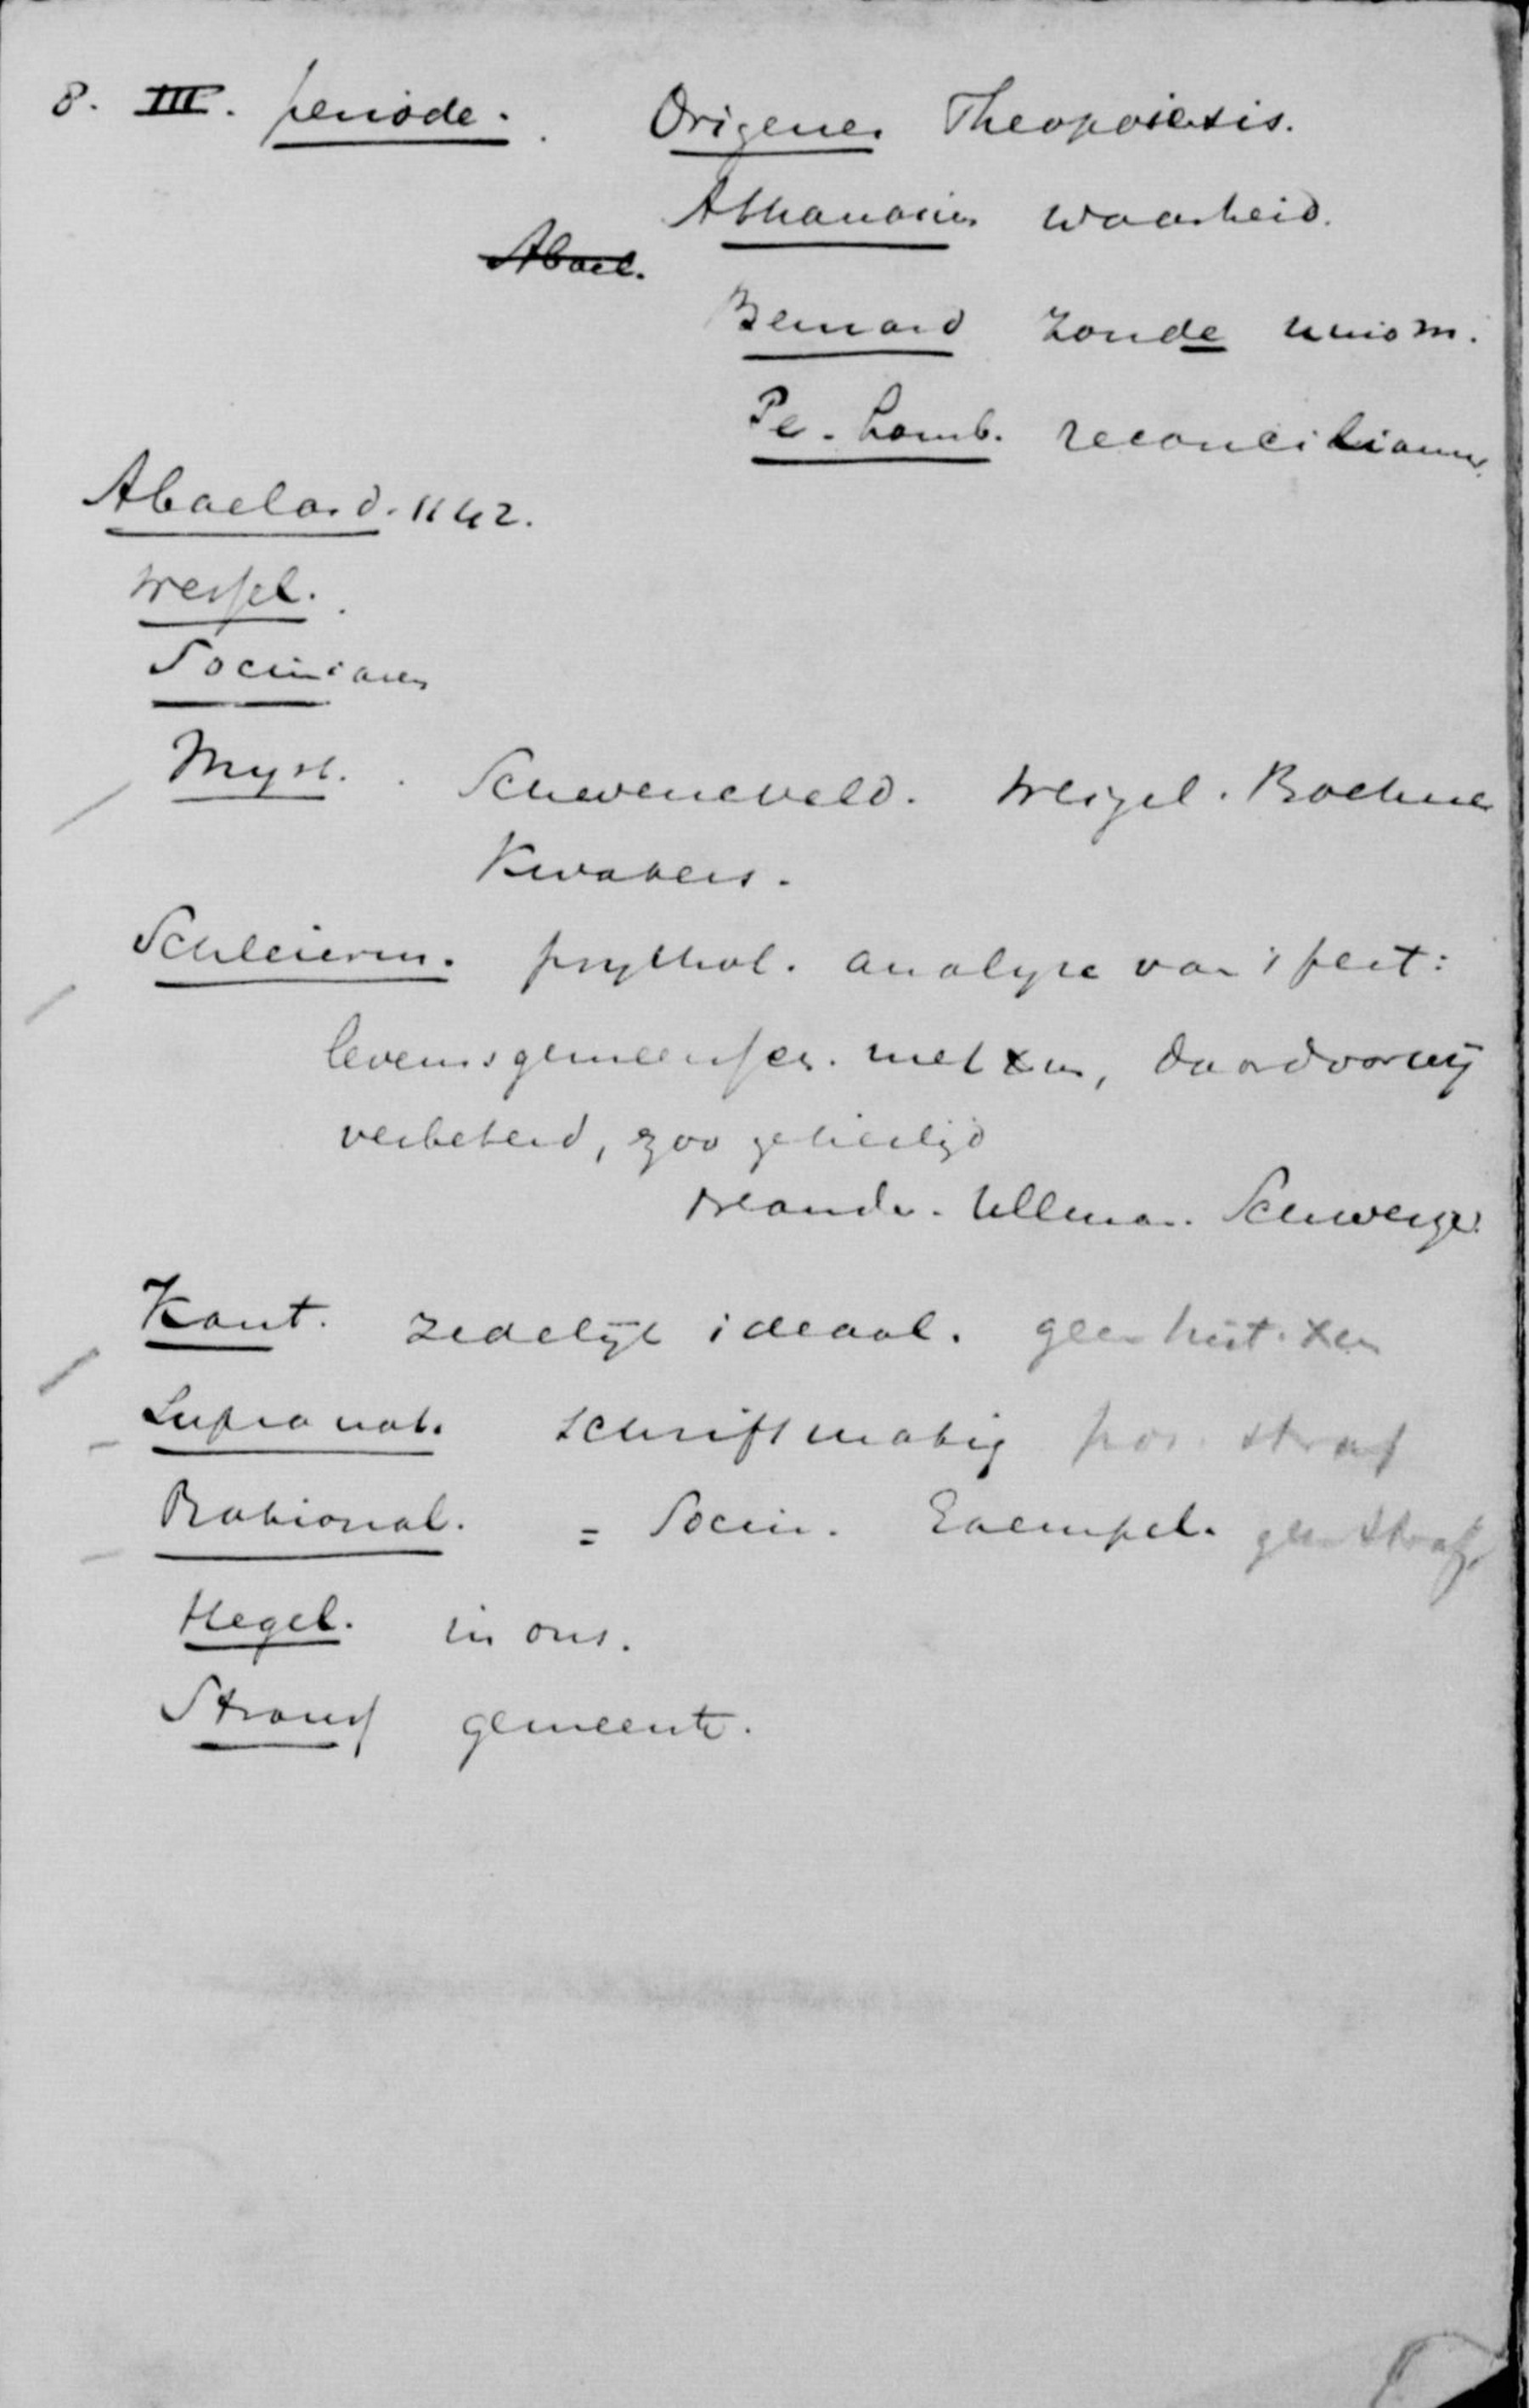 8. III. periode. Origenes Theopoiesis.
Athanasius waarheid.
Abael.
Bernard zonde unio m.
Pe. Lomb. reconciliamur
Abaelard. 1142.
Wessel.
Socinianen
Myst. Schwenckveld. Weigel. Boehme
Kwakers.
Schleierm. psychol. analyse van 't feit:
levensgemeensch. met Xus, daardoor wij
verbeterd, zoo geheiligd
Neander. Ullman. Schweizer.
Kant. zedelijk ideaal. geen hist. Xen
Supranat. schriftmatig pos. straf
Rational. = Socin. Exempel. geen straf
Hegel. in ons.
Strauss gemeente.